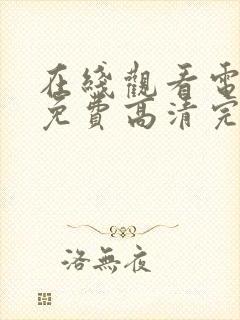 在綫觀看電
免費高清完
洛無夜